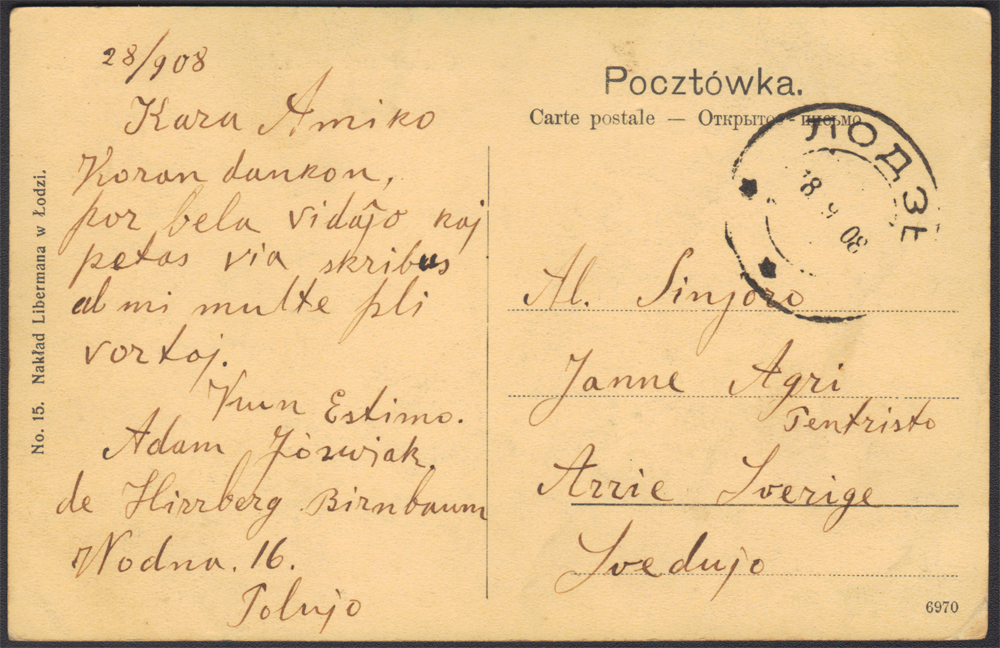 28/908
Kara Amiko
Koran dankon,
por bela vidaĵo kaj
petas via skribus
al mi multe pli
vortoj.
Kun Estimo.
Adam Józwiak.
de Hirzberg Birnbaum
Wodna. 16.
Polujo
No. 15. Nakład Libermana w Łodzi.
Pocztówka.
Carte postale — Открытое-письмо
ЛОДЗЬ
18 9 08
Al. Sinjoro
Janne Agri
Pentristo
Arrie Sverige
Svedujo
6970